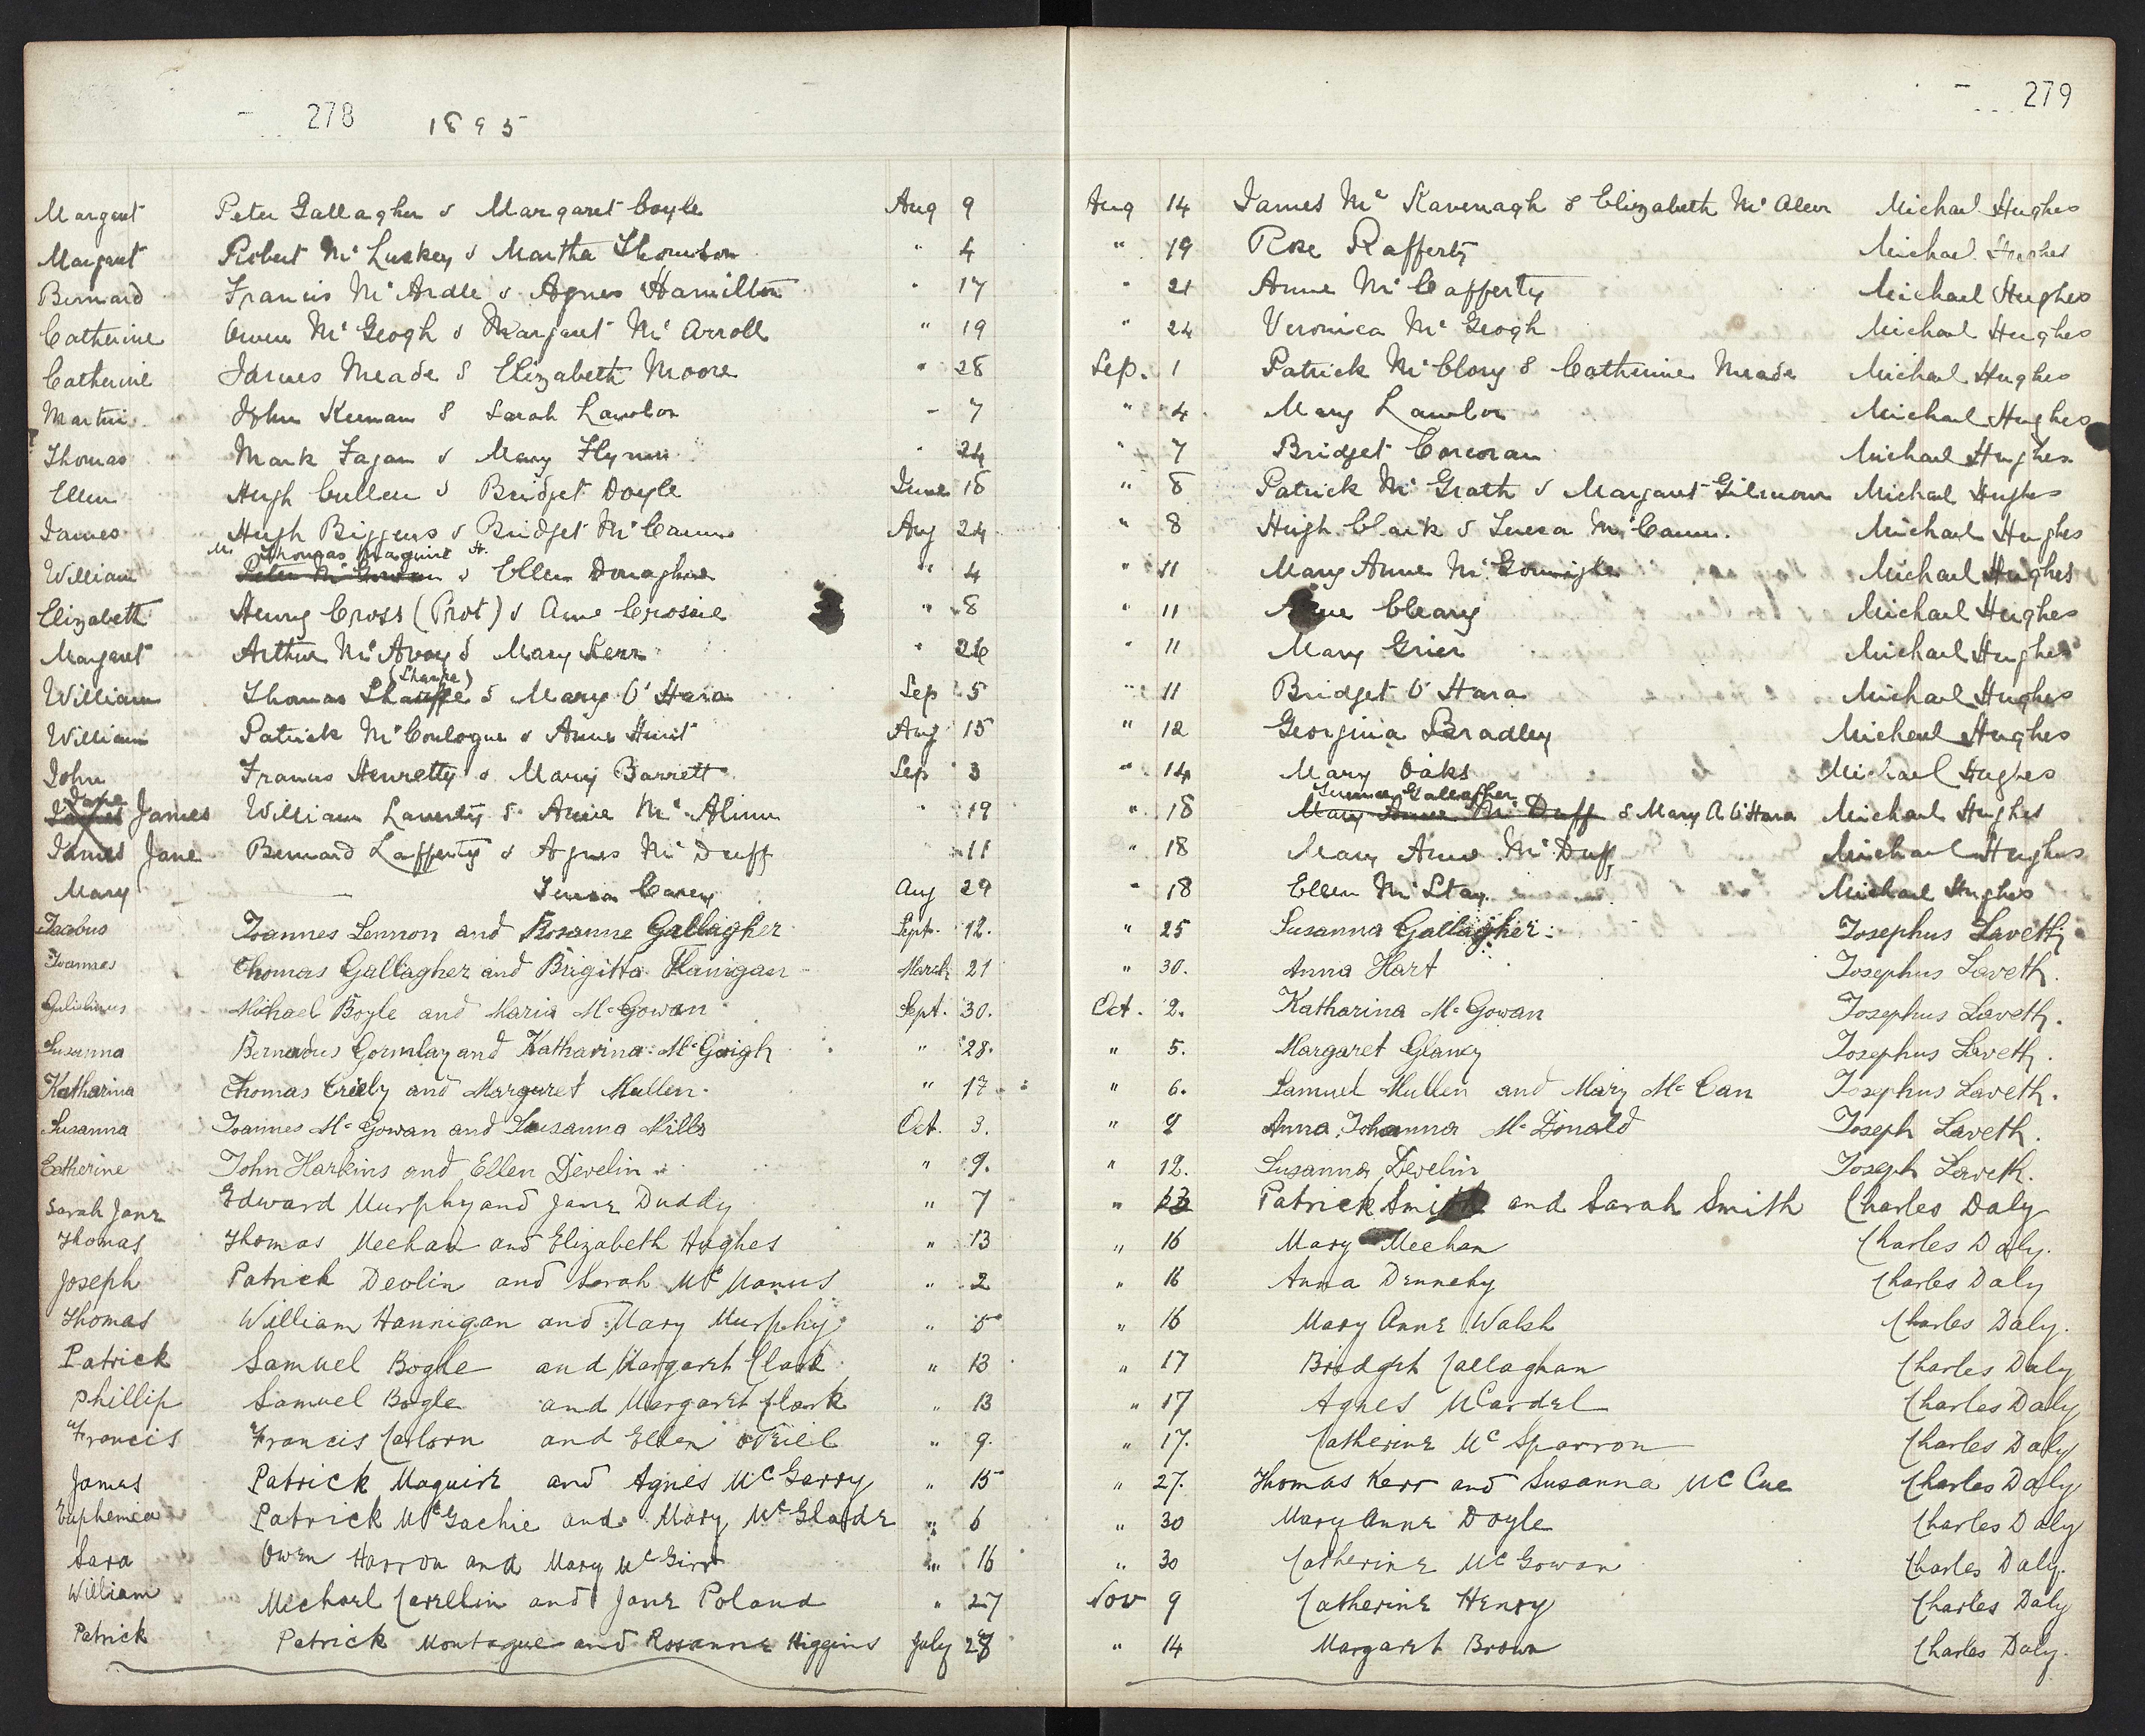 278 1895
279
Margaret Peter Gallagher & Margaret Coyle Aug 9 Aug 14 James Mc Kavenagh & Elizabeth Mc Aleer Michael Hughes
Margaret Robert Mc Luskey & Martha Thomson " 4 " 19 Rose Rafferty Michael Hughes
Bernard Francis Mc Ardle & Agnes Hamilton " 17 " 21 Anne Mc Cafferty Michael Hughes
Catherine Owen Mc Geogh & Margaret Mc Arroll " 19 " 24 Veronica Mc Geogh Michael Hughes
Catherine James Meade & Elizabeth Moore " 28 Sep. 1 Patrick Mc Clory & Catherine Meade Michael Hughes
Martin John Keenan & Sarah Lawlor " 7 " 4 Mary Lawlor Michael Hughes
Thomas Mark Fagan & Mary Flynn " 24 " 7 Bridget Corcoran Michael Hughes
Ellen Hugh Cullen & Bridget Doyle June 18 " 8 Patrick Mc Grath & Margaret Gilmour Michael Hughes
James Hugh Biggens & Bridget Mc Cann Aug 24 " 8 Hugh Clark & Teresa Mc Cann. Michael Hughes
Thomas Maguire
William Peter Mc Gowan & Ellen Donaghue " 4 " 11 Mary Anne Mc Gonigle Michael Hughes
Elizabeth Henry Cross (Prot) & Anne Crossie " 8 " 11 Anne Cleary Michael Hughes
Margaret Arthur Mc Avoy & Mary Kerr " 26 " 11 Mary Grier Michael Hughes
(Sharpe)
William Thomas & Mary O'Hara Sep 5 " 11 Bridget O'Hara Michael Hughes
William Patrick Mc Conlogue & Anne Hunt Aug 15 " 12 Georgina Bradley Michael Hughes
John Francis Henretty & Mary Barrett Sep 3 " 14 Mary Oaks Michael Hughes
Jane Gallagher
James William Laverty & Annie Mc Alinn " 19 " 18 Mary Anne Mc Duff & Mary A O'Hara Michael Hughes
James Jane Bernard Lafferty & Agnes Mc Duff " 11 " 18 Mary Anne Mc Duff Michael Hughes
Mary — Teresa Carey Aug 29 " 18 Ellen Mc Stay Michael Hughes
Jacobus Joannes Lennon and Rosanne Gallagher Sept. 12. " 25 Susanna Gallagher. Josephus Laveth
Joannes Thomas Gallagher and Brigitta Flanigan March 21 " 30. Anna Hart Josephus Laveth.
Gulielmus Michael Boyle and Maria Mc Gowan Sept. 30. Oct. 2. Katharina Mc Gowan Josephus Laveth.
Susanna Bernardus Gormlay and Katharina Mc Goigh " 28. " 5. Margaret Glancy Josephus Laveth.
Katharina Thomas Crielly and Margaret Mullen. " 17 " 6. Samuel Mullen and Mary Mc Can Josephus Laveth.
Susanna Joannes Mc Gowan and Susanna Mills Oct. 3. " 9 Anna Johanna Mc Donald Joseph Laveth.
Catherine John Harkins and Ellen Develin " 9. " 12. Susanna Develin Joseph Laveth.
Sarah Jane Edward Murphy and Jane Duddy " 7 " 13 Patrick Smith and Sarah Smith Charles Daly
Thomas Thomas Meehan and Elizabeth Hughes " 13 " 16 Mary Meehan Charles Daly.
Joseph Patrick Devlin and Sarah McManus " 2 " 16 Anna Dennehy Charles Daly
Thomas William Hannigan and Mary Murphy " 5 " 16 Mary Anne Walsh Charles Daly.
Patrick Samuel Bogle and Margaret Clark " 13 " 17 Bridget Callaghan Charles Daly
Phillip Samuel Bogle and Margaret Clark " 13 " 17 Agnes McArdel Charles Daly
Francis Francis and Ellen O'Neill " 9. " 17. Catherine Mc Sparron Charles Daly
James Patrick Maguire and Agnes McGarry " 15 " 27. Thomas Kerr and Susanna McCue Charles Daly
Euphemia Patrick McGachie and Mary McGlade " 6 " 30 Mary Anne Doyle Charles Daly
Sara Owen Harron and Mary McGirr " 16 " 30 Catherine McGowan Charles Daly.
William Michael and Jane Poland " 27 Nov 9 Catherine Henry Charles Daly
Patrick Patrick Montague and Rosanne Higgins July 28 " 14 Margaret Brown Charles Daly.